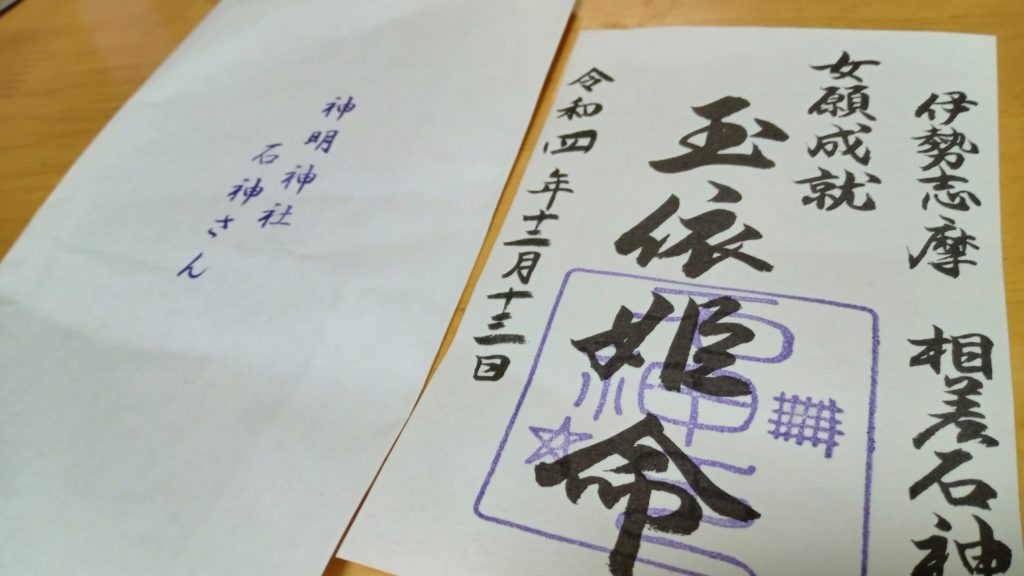 神明神社
石神さん
伊勢志摩 相差石神
女願成就
玉依姫命
令和四年十二月十三日